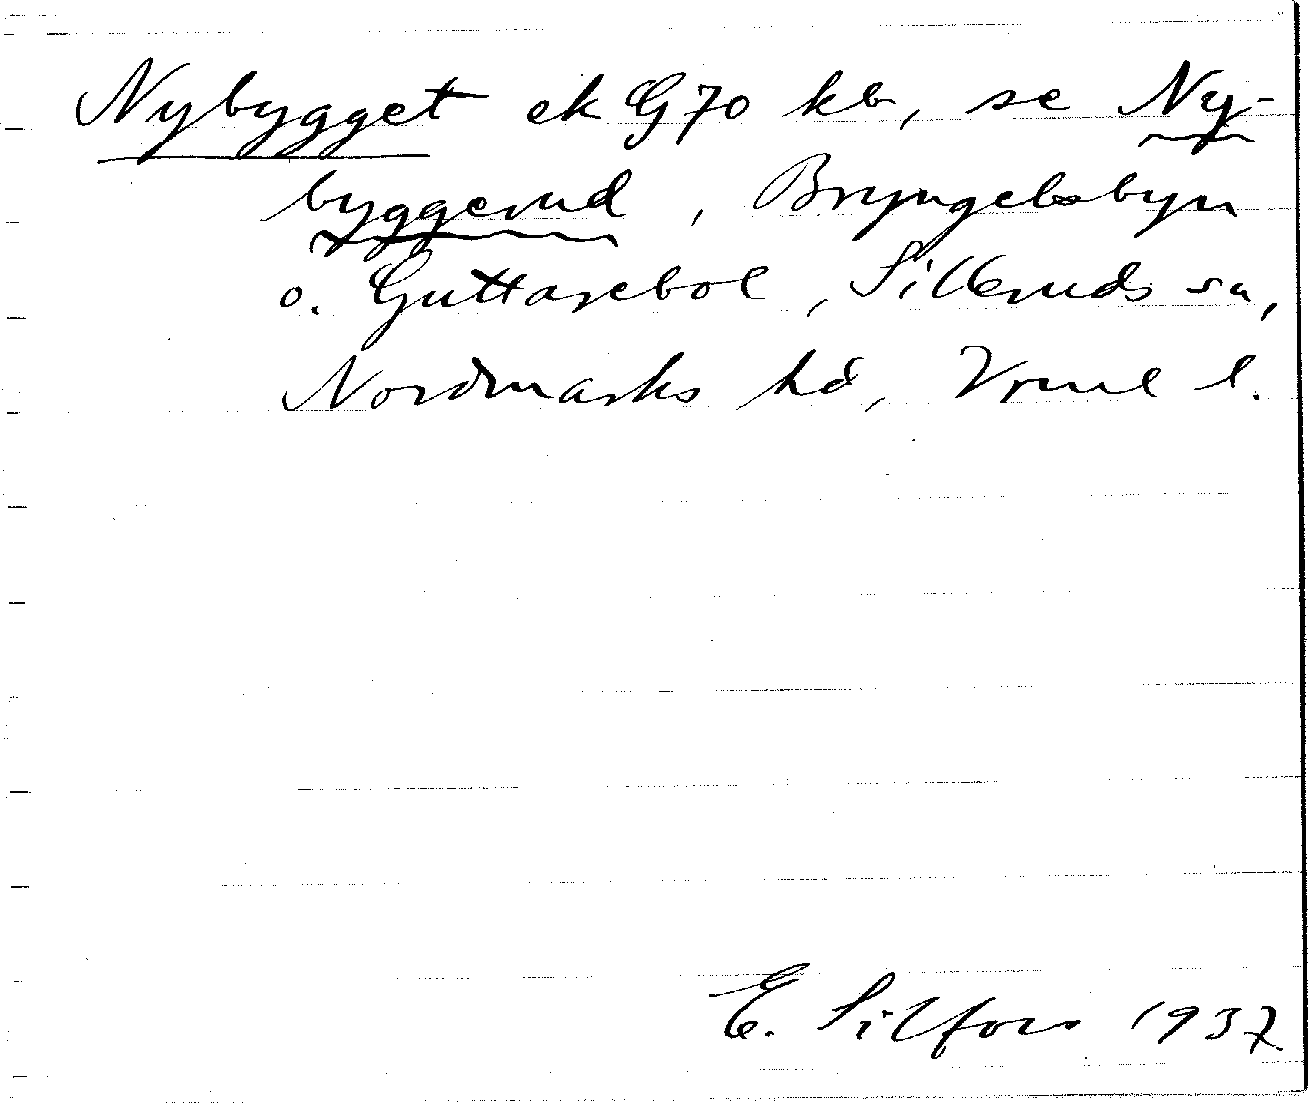 Nybygget ek G70 kb, se Ny-
byggerud, Bryngelsbyn
o. Guttarebol, Silleruds sn,
Nordmarks hd, Vrml l.
E. Silfors 1937.